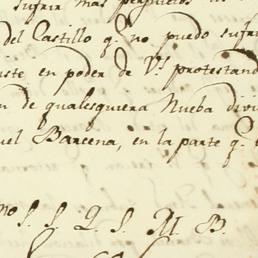 sufrir mas perjuicios
del Castillo q.e no puedo sufri
iste en poder de V.s protestand
n de qualesquiera Nueba divi
uel Barcena, en la parte q.e
S. S. Q. S. M. B.